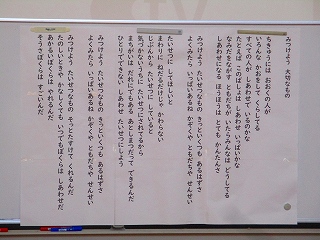 みつけよう 大切なもの
ちきゅうには おおくの人が
いろんな かおをして くらしてる
すべての人が しあわせ いるのかな
たとえば このぼくは しあわせ いっぱいかな
なみだをながす ともだちが いたらみんなは どうしてる
しあわせになる ほうほうは とても かんたんさ
みつけよう たいせつなもの きっといくつも あるはずさ
よくみたら いっぱいあるね かぞくや ともだちや せんせい
たいせつに してほしいと
まわりに ねだるだけじゃ かわらない
じぶんから たいせつに していると
気づかないうちに たいせつに されてるから
まちがいは だれにでもある あとしまつだって できるんだ
ひとりでできない しあわせ たいせつにしよう
みつけよう たいせつなもの きっといくつも あるはずさ
よくみたら いっぱいあるね かぞくや ともだちや せんせい
みつけよう たいせつなもの そっとたすけて くれるんだ
たのしいときや かなしくても いつでもぼくらは しあわせだ
あかるいぼくらは やれるんだ
そうさぼくらは すごいんだ